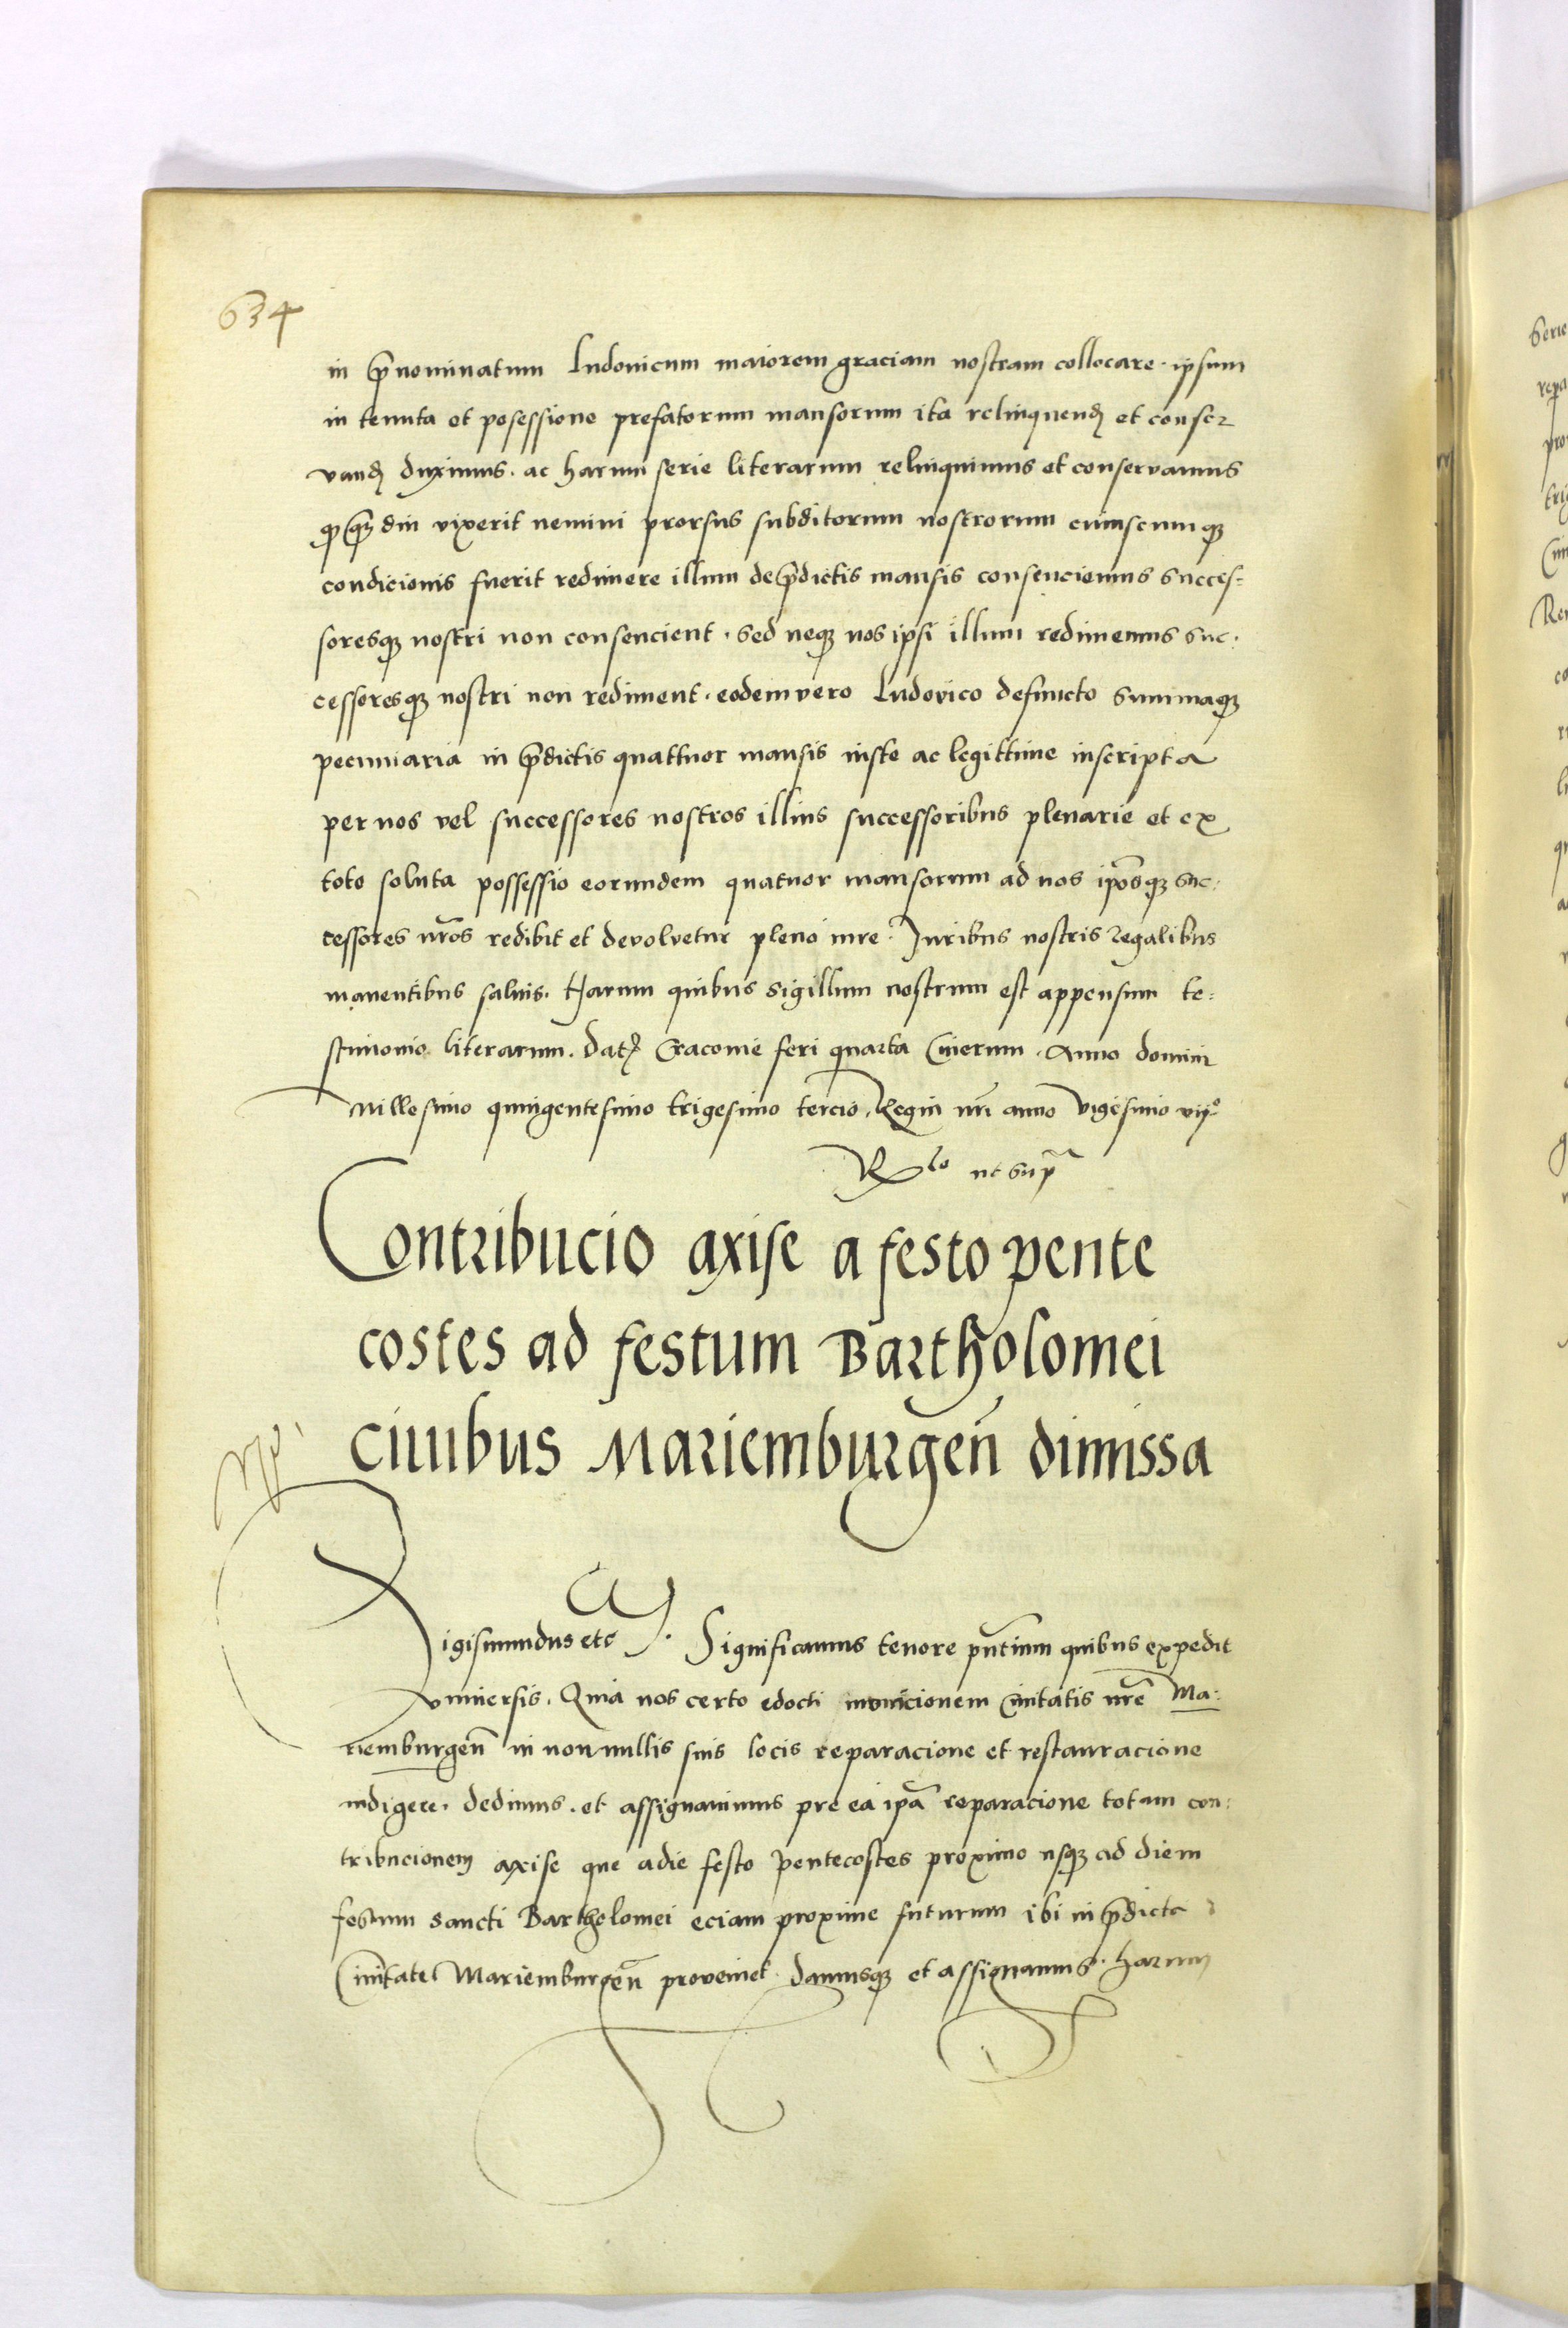 634
in p̄nominatum Ludouicum maiorem graciam nostram collocare · ipsum
in tenuta et posessione prefatorum mansorum ita relinquend̨ et conser
vand̨ duximus · ac harum serie literarum relinquimus et conservamus
q̨ q̄diu vixerit nemini prorsus subditorum nostrorum cuiuscumq̨
condicionis fuerit redimere illum de p̄dictis mansis consenciemus succes=
soresq̨ nostri non consencient · sed neq̨ nos ipsi illum redimemus suc·
cessoresq̨ nostri non rediment · eodem vero Ludovico defuncto summaq̨
pecuniaria in p̄dictis quattuor mansis iuste ac legittime inscripta
per nos vel successores nostros illius successoribus plenarie et ex
toto soluta possessio eorundem quatuor mansorum ad nos ip̄osq̨ suc:
cessores nr̄os redibit et devolvetur pleno iure · Juribus nostris regalibus
manentibus saluis · Harum quibus sigillum nostrum est appensum te:
stimonio literarum · Dat̨ Cracouie feri quarta Cinerum · Anno domini
Millesimo quingentesimo trigesimo tercio, Regni nr̄i anno vigesimo vijᵒ
Rˡᵒ ut sup̄
Contribucio axise a festo pente
costes ad festum Bartholomei
ciuibus Mariemburgen̄ dimissa
Sigismundus etc · Significamus tenore pn̄tium quibus expedit
vniuersis · Quia nos certo edocti municionem Ciuitatis nr̄e Ma:
riemburgen̄ in nonnullis suis locis reparacione et restauracione
indigere · dedimus · et assignauimus pro ea ip̄a reparacione totam con:
tribucionem axise que a die festo Pentecostes proximo usq̨ ad diem
festum sancti Bartholomei eciam proxime futurum ibi in p̄dicta
Ciuitate Mariemburgen̄ proveniet · damusq̨ et assignamus · harum